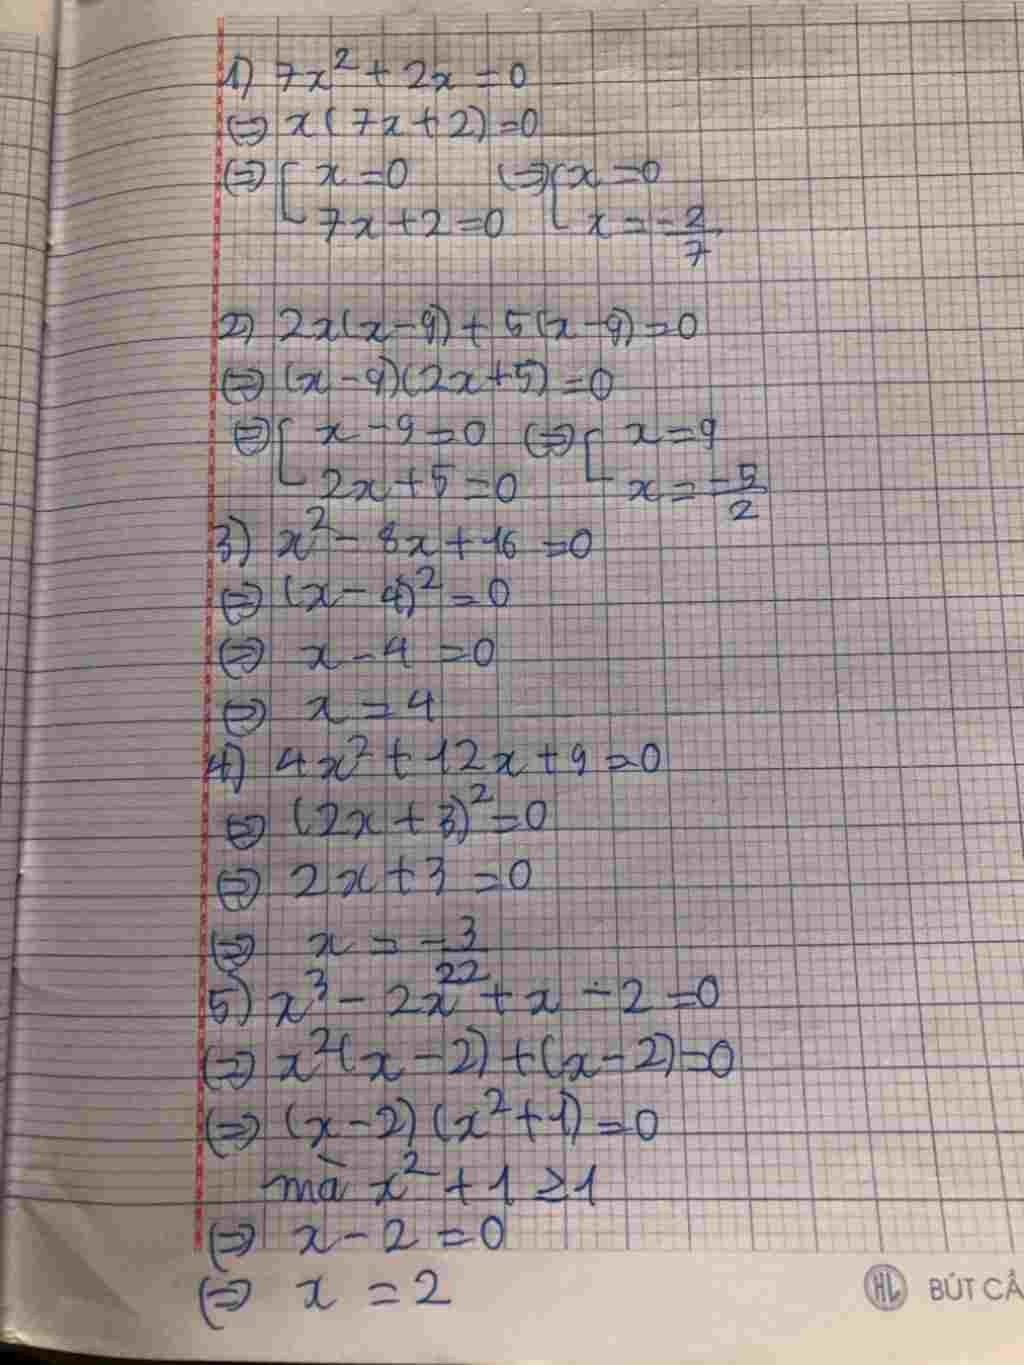 1) 7x² + 2x = 0
⇔ x(7x+2)=0
⇔ [ x=0 ⇔ [ x=0
7x+2=0 x=-2/7
2) 2x(x-9)+5(x-9)=0
⇔ (x-9)(2x+5)=0
⇔ [ x-9=0 ⇔ [ x=9
2x+5=0 x=-5/2
3) x²-8x+16=0
⇔ (x-4)²=0
⇔ x-4=0
⇔ x=4
4) 4x²+12x+9=0
⇔ (2x+3)²=0
⇔ 2x+3=0
⇔ x=-3/2
5) x³-2x²+x-2=0
⇔ x²(x-2)+(x-2)=0
⇔ (x-2)(x²+1)=0
mà x²+1≥1
⇔ x-2=0
⇔ x=2
HL BÚT CẢ